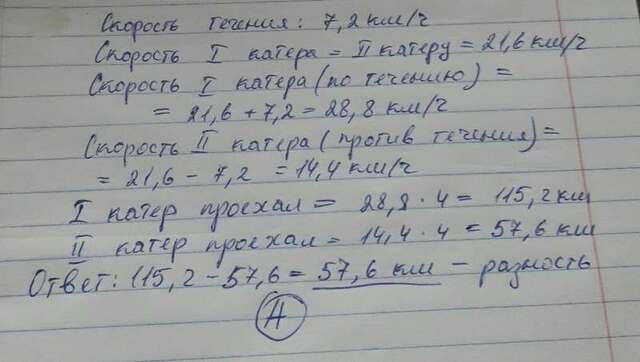 Скорость течения: 7,2 км/ч
Скорость I катера = II катеру = 21,6 км/ч
Скорость I катера (по течению) =
= 21,6 + 7,2 = 28,8 км/ч
Скорость II катера (против течения) =
= 21,6 - 7,2 = 14,4 км/ч
I катер проехал = 28,8 · 4 = 115,2 км
II катер проехал = 14,4 · 4 = 57,6 км
Ответ: 115,2 - 57,6 = 57,6 км - разность
А